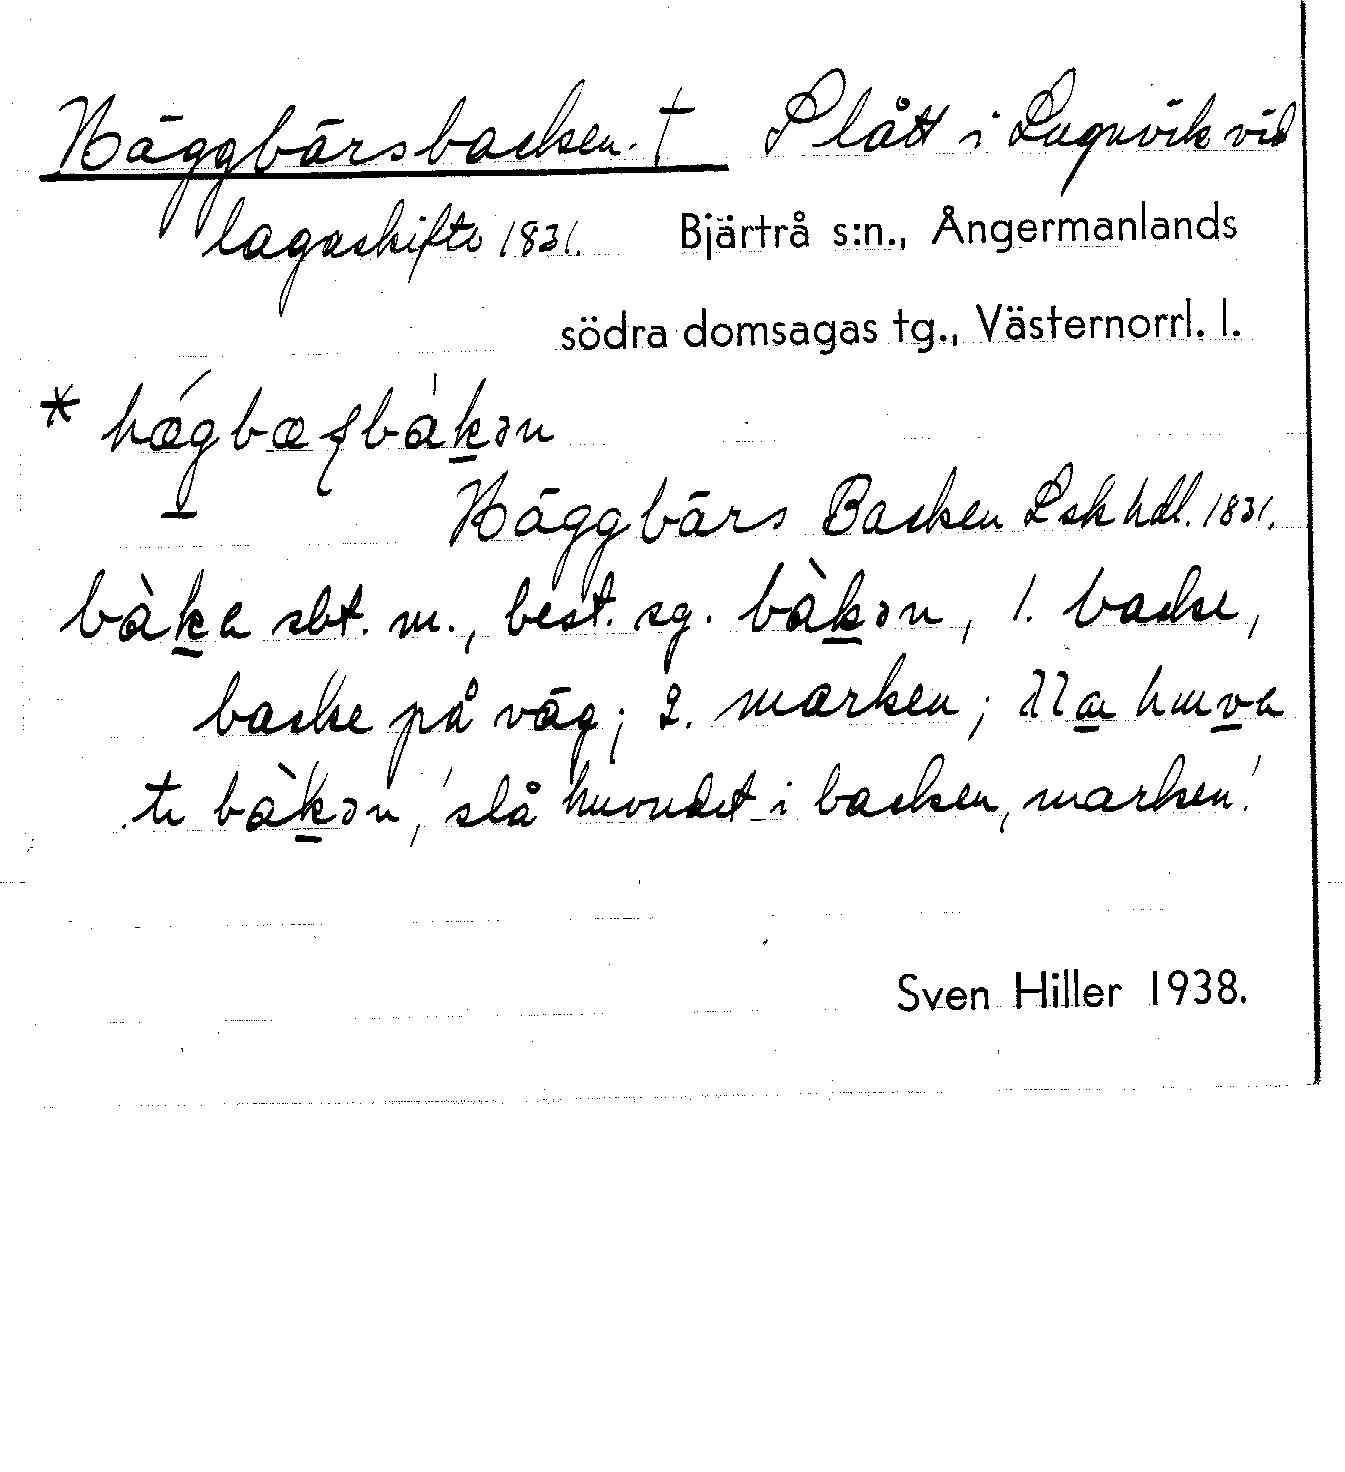 Häggbärsbacken. † Slått i Lugnvik vid
lagaskifte 1831. Bjärtrå s:n., Ångermanlands
södra domsagas tg., Västernorrl. l.
* hǽg̲bæʃbàk̲ən
Häggbärs Backen Lsk hdl. 1831.
bàk̲a sbt. m., best. sg. bàk̲ən, 1. backe,
backe på väg; 2. marken;
bàk̲ən, 'slå huvudet i backen, marken!'
Sven Hiller 1938.